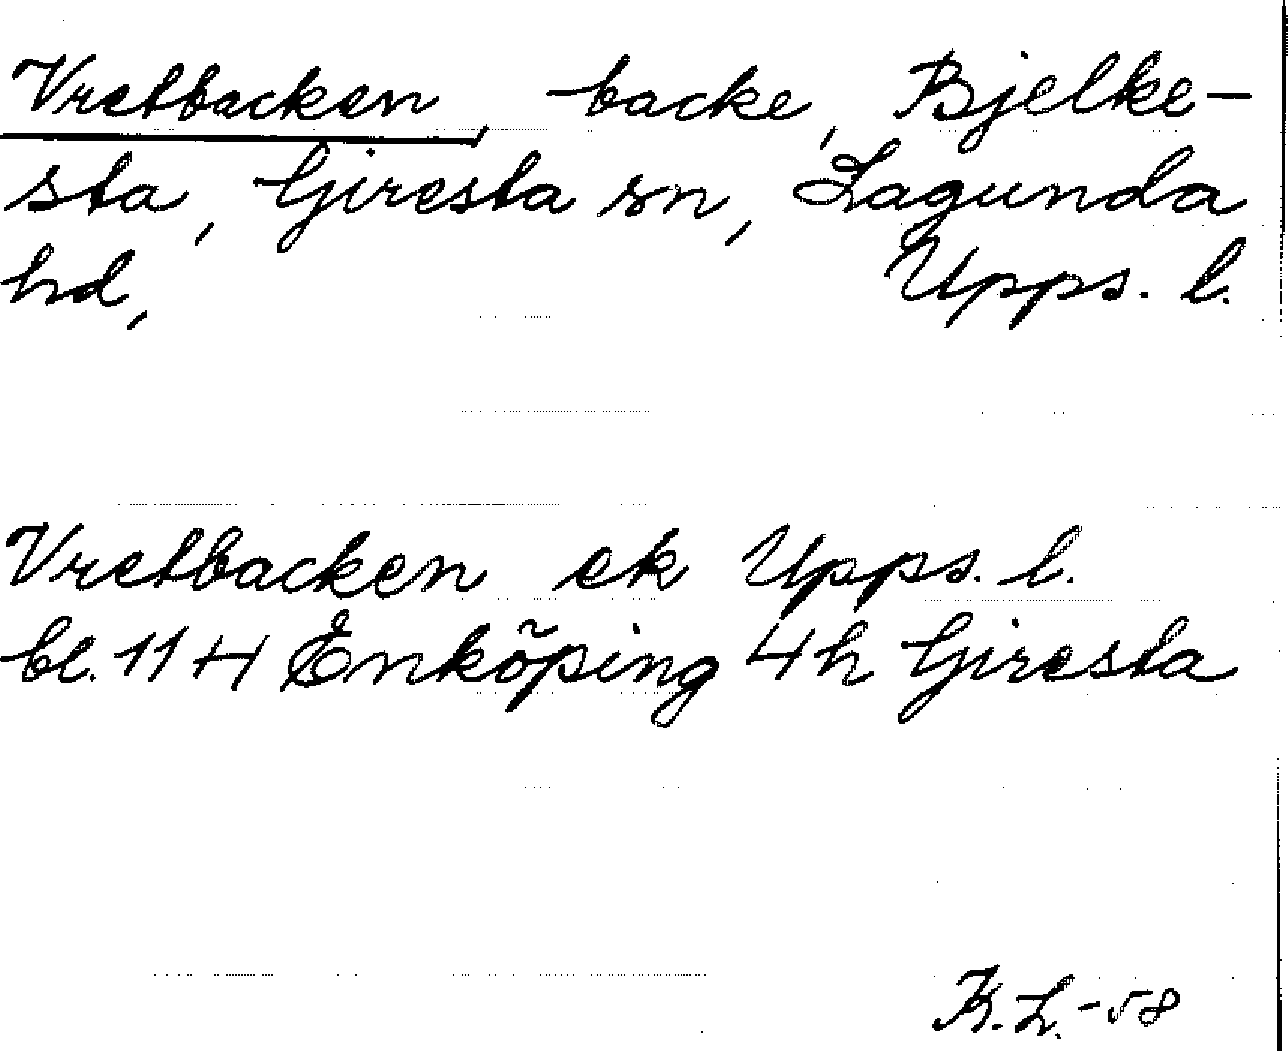 Vretbacken, backe, Bjelke-
sta, Giresta sn, Lagunda
hd, Upps. l.
Vretbacken ek Upps. l.
bl. 11 H Enköping 4h Giresta
K. L. -58